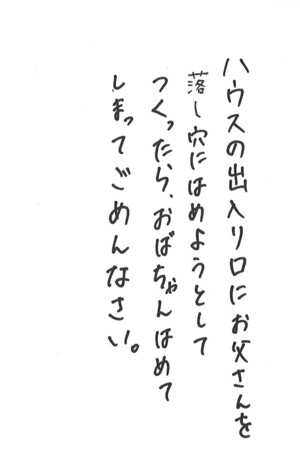 ハウスの出入り口にお父さんを
落し穴にはめようとして
つくったら、おばちゃんはめて
しまってごめんなさい。